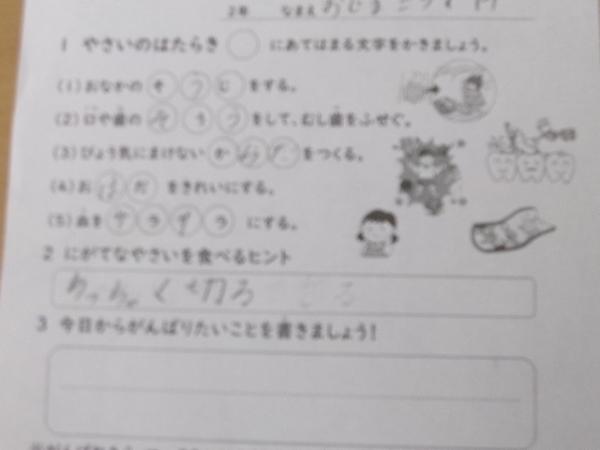 2年 なまえ
1 やさいのはたらき ○ にあてはまる文字をかきましょう。
(1) おなかの そうじ をする。
(2) 口や歯の そうじ をして、むし歯をふせぐ。
(3) びょう気にまけない からだ をつくる。
(4) お はだ をきれいにする。
(5) 血を サラサラ にする。
2 にがてなやさいを食べるヒント
ちっちゃく切る
3 今日からがんばりたいことを書きましょう!